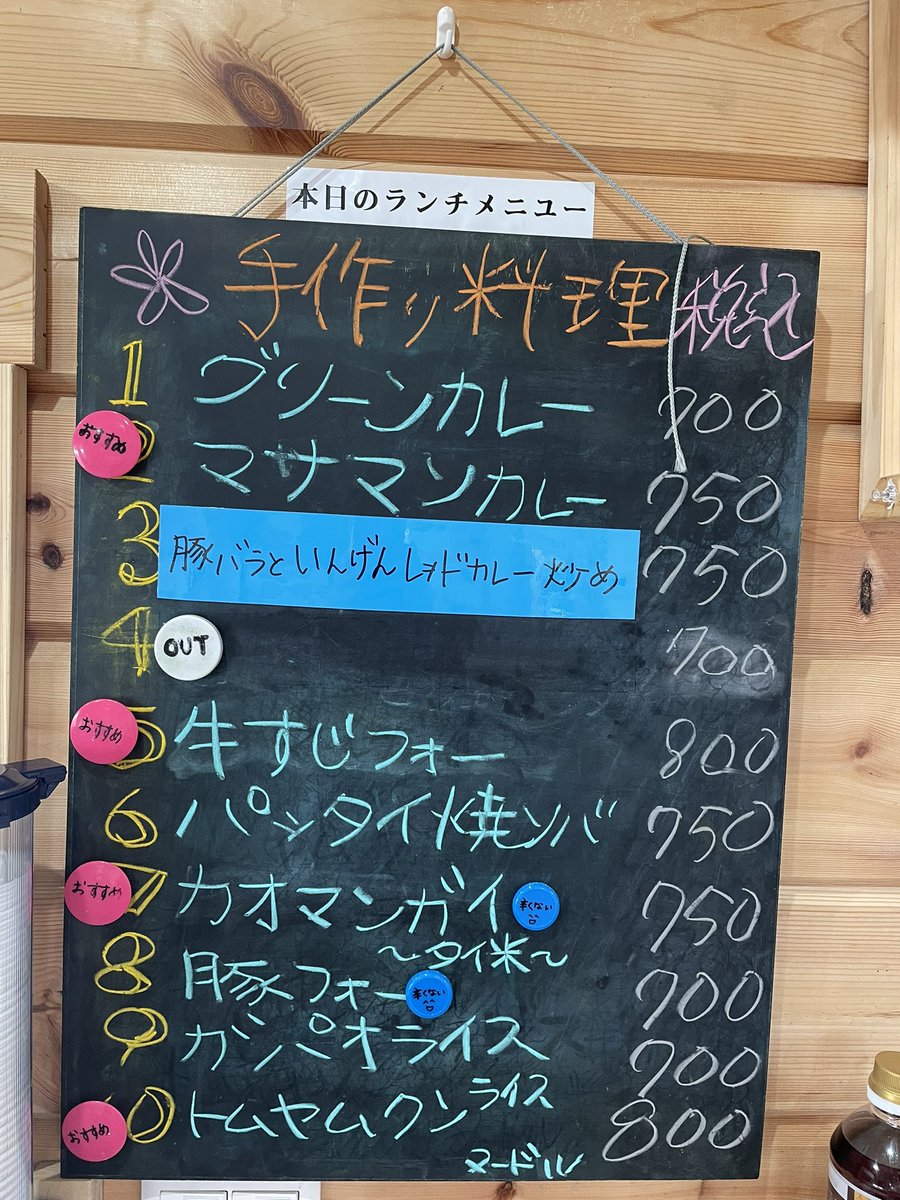 本日のランチメニュー
手作り料理 税込
1 グリーンカレー 700
おすすめ 2 マサマンカレー 750
3 豚バラといんげんレッドカレー炒め 750
4 OUT 700
おすすめ 5 牛すじフォー 800
6 パッタイ焼ソバ 750
おすすめ 7 カオマンガイ 辛くない 750
〜タイ米〜
8 豚フォー 辛くない 700
9 ガパオライス 700
おすすめ 10 トムヤムクン ライス 800
ヌードル